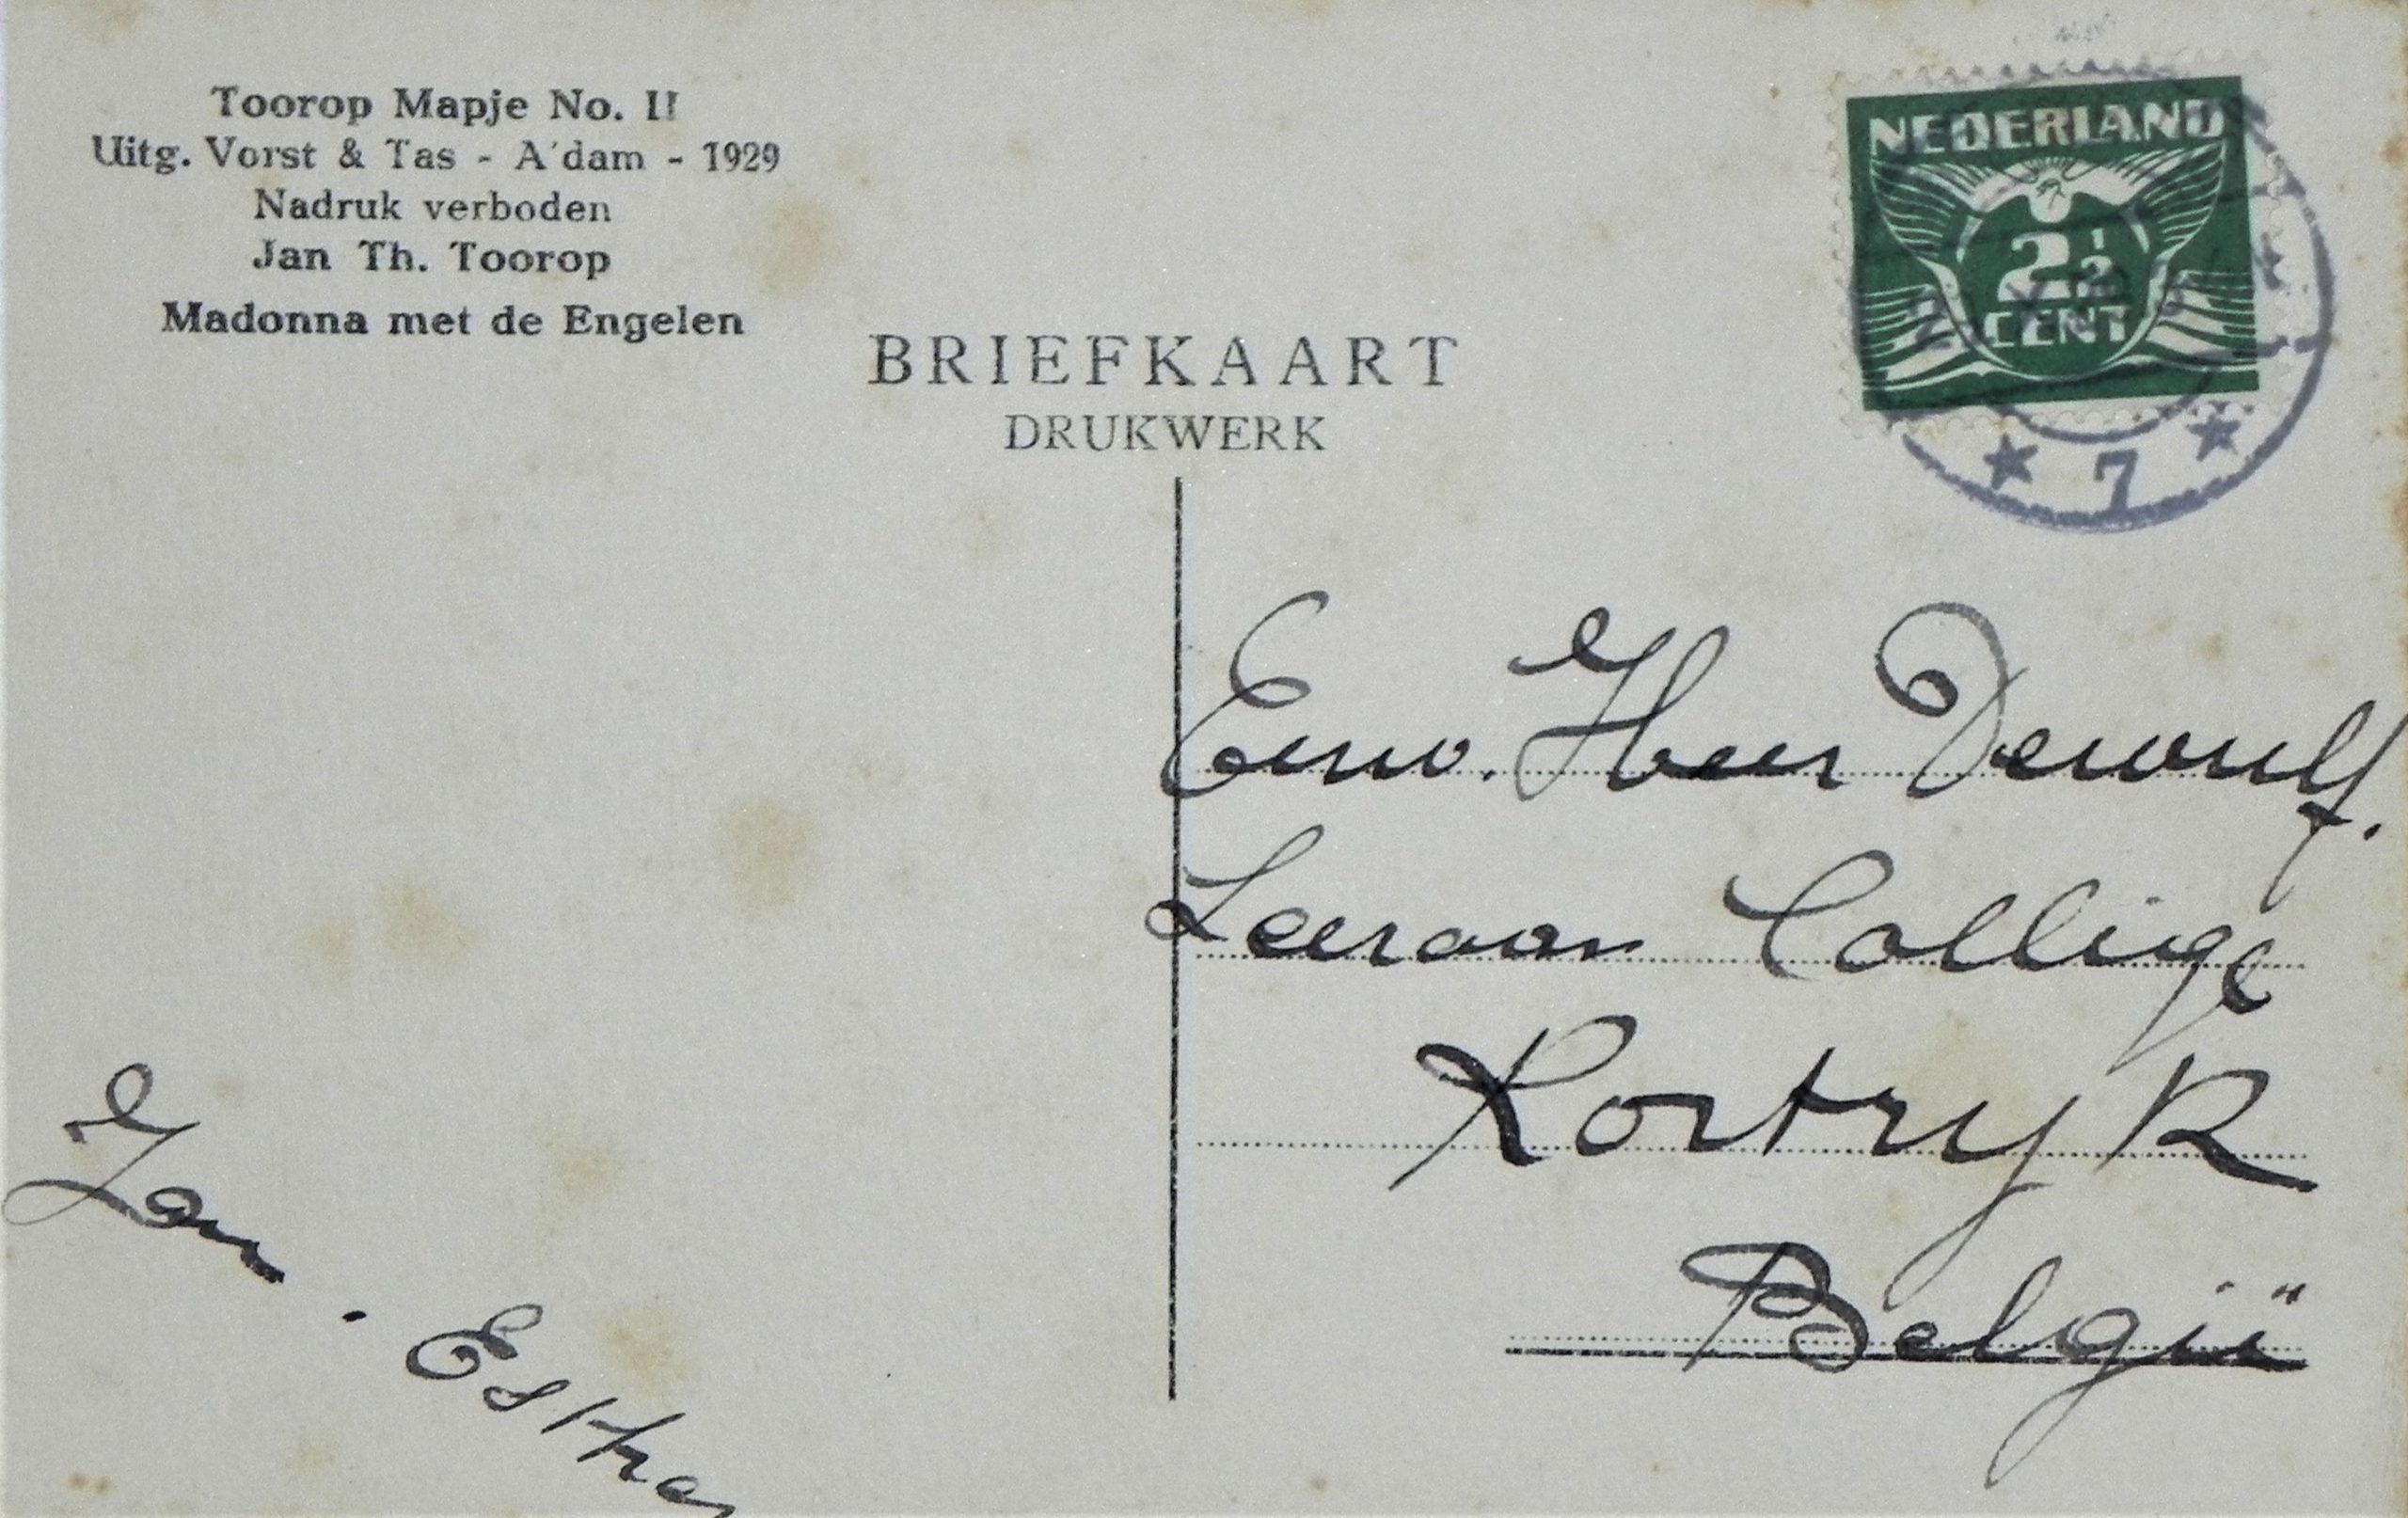 Toorop Mapje No. II
Uitg. Vorst & Tas - A'dam - 1929
Nadruk verboden
Jan Th. Toorop
Madonna met de Engelen
BRIEFKAART
DRUKWERK
NEDERLAND
2½
CENT
7
Eerw. Heer Dewulf.
Leeraar College
Kortryk
België
Jan. Esther